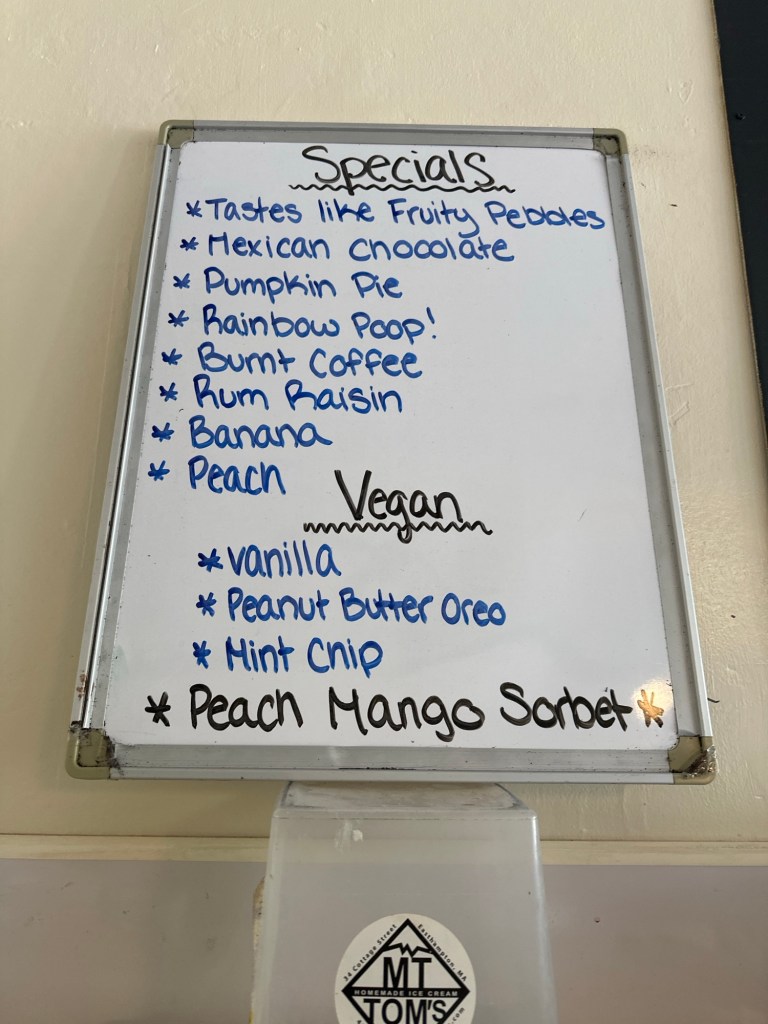 Specials
* Tastes like Fruity Pebbles
* Mexican chocolate
* Pumpkin Pie
* Rainbow Poop!
* Burnt Coffee
* Rum Raisin
* Banana
* Peach
Vegan
* vanilla
* Peanut Butter Oreo
* Mint Chip
* Peach Mango Sorbet *
34 Cottage Street Easthampton, MA.
MT
HOMEMADE ICE CREAM
TOM'S